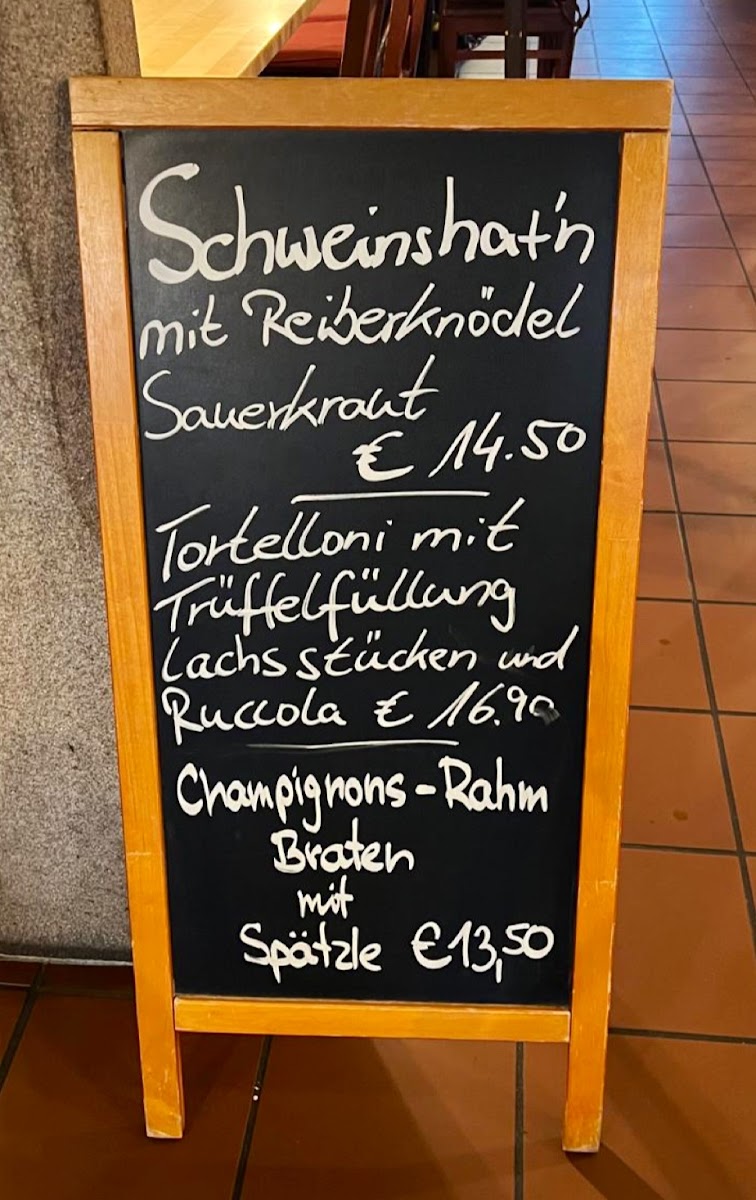 Schweinshat'n
mit Reiberknödel
Sauerkraut
€ 14.50
Tortelloni mit
Trüffelfüllung
Lachsstücken und
Ruccola € 16.90
Champignons-Rahm
Braten
mit
Spätzle €13,50